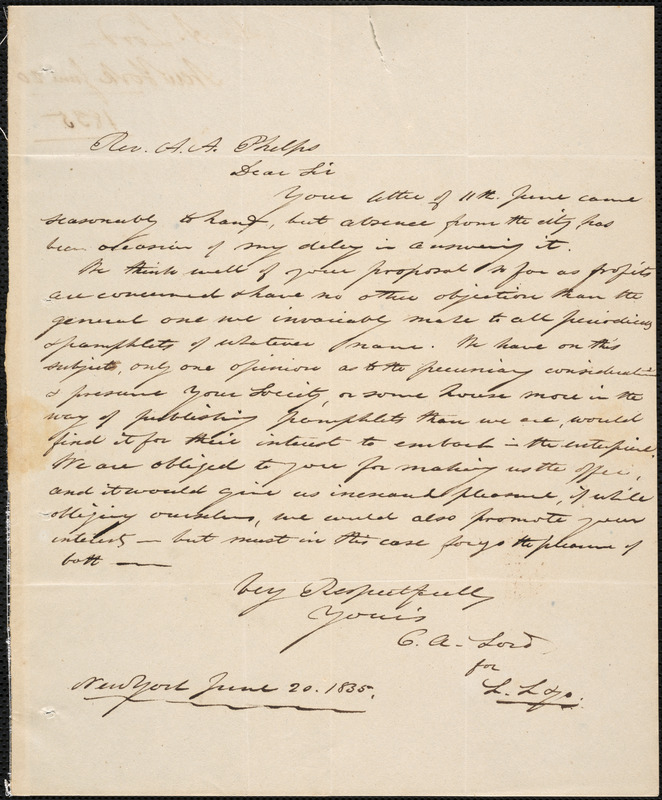 Rev. A. A. Phelps
Dear Sir
Your letter of 11th. June came
seasonably to hand, but absence from the city has
been occasion of my delay in answering it.
We think well of your proposal so far as profits
are concerned & have no other objection than the
general one we invariably make to all periodicals
& pamphlets of whatever name. We have on this
subject, only one opinion as to the pecuniary consideration
& presume your Society, or some house more in the
way of publishing pamphlets than we are, would
find it for their interest to embark in the enterprise.
We are obliged to you for making us the offer,
and it would give us increased pleasure, if while
obliging ourselves, we could also promote your
interests — but must in this case forgo the pleasure of
both —
Very Respectfully
Yours
C. A. Lord
for
L. L & Co.
New York June 20. 1835.